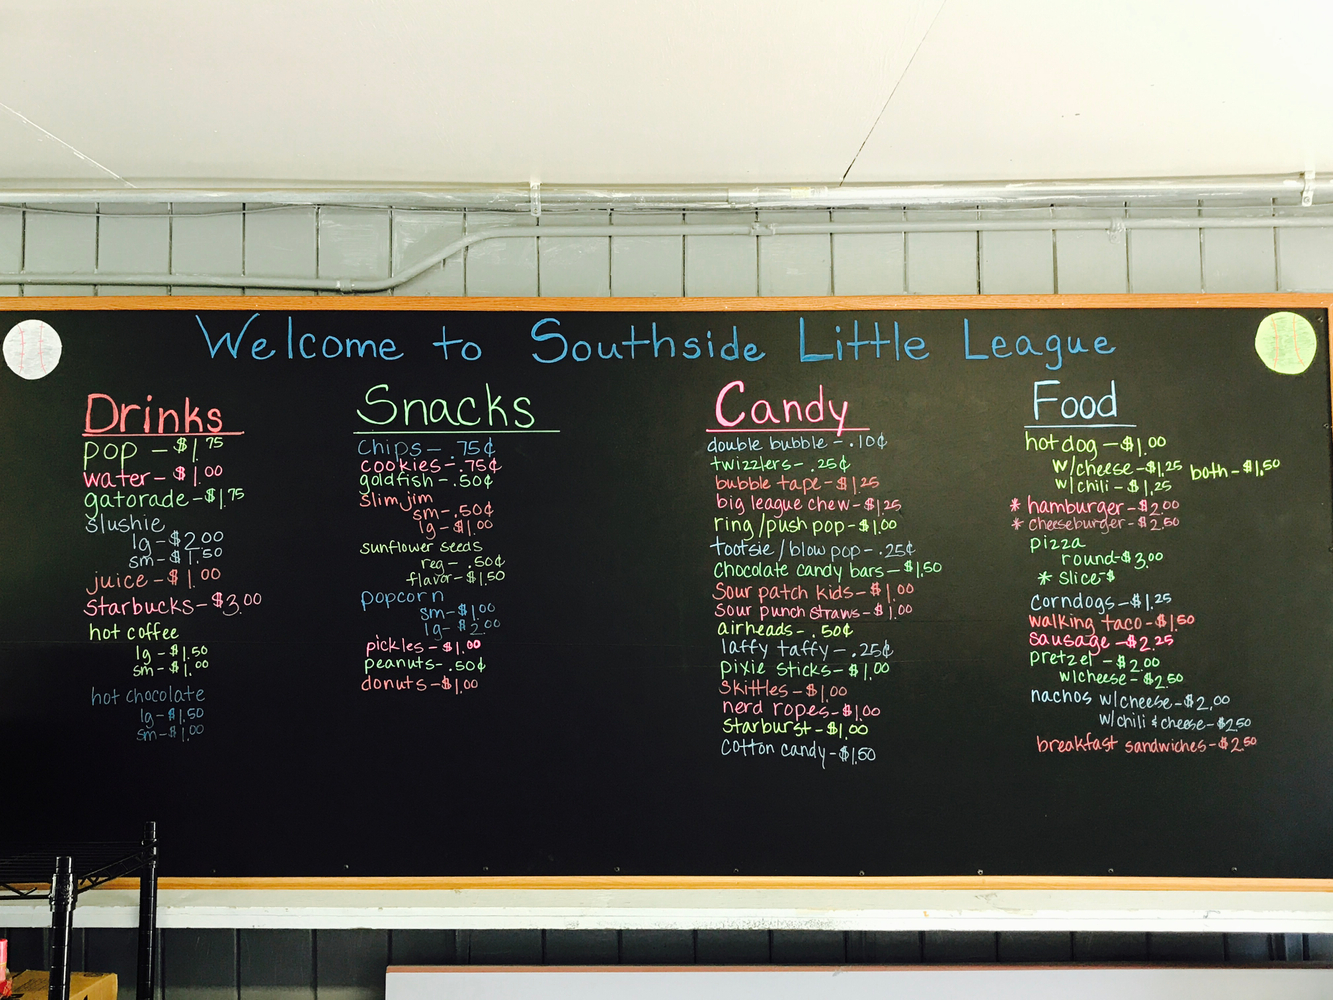 Welcome to Southside Little League
Drinks
pop - $1.75
water - $1.00
gatorade - $1.75
slushie
lg - $2.00
sm - $1.50
juice - $1.00
Starbucks - $3.00
hot coffee
lg - $1.50
sm - $1.00
hot chocolate
lg - $1.50
sm - $1.00
Snacks
Chips - .75¢
cookies - .75¢
goldfish - .50¢
slim jim
sm - .50¢
lg - $1.00
sunflower seeds
reg - .50¢
flavor - $1.50
popcorn
sm - $1.00
lg - $2.00
pickles - $1.00
peanuts - .50¢
donuts - $1.00
Candy
double bubble - .10¢
twizzlers - .25¢
bubble tape - $1.25
big league chew - $1.25
ring/push pop - $1.00
tootsie/blow pop - .25¢
Chocolate candy bars - $1.50
Sour patch kids - $1.00
Sour punch straws - $1.00
airheads - .50¢
laffy taffy - .25¢
pixie sticks - $1.00
Skittles - $1.00
nerd ropes - $1.00
Starburst - $1.00
Cotton candy - $1.50
Food
hot dog - $1.00
w/cheese - $1.25 both - $1.50
w/chili - $1.25
* hamburger - $2.00
* cheeseburger - $2.50
pizza
round - $3.00
* slice - $
Corndogs - $1.25
walking taco - $1.50
sausage - $2.25
pretzel - $2.00
w/cheese - $2.50
nachos w/cheese - $2.00
w/chili & cheese - $2.50
breakfast sandwiches - $2.50